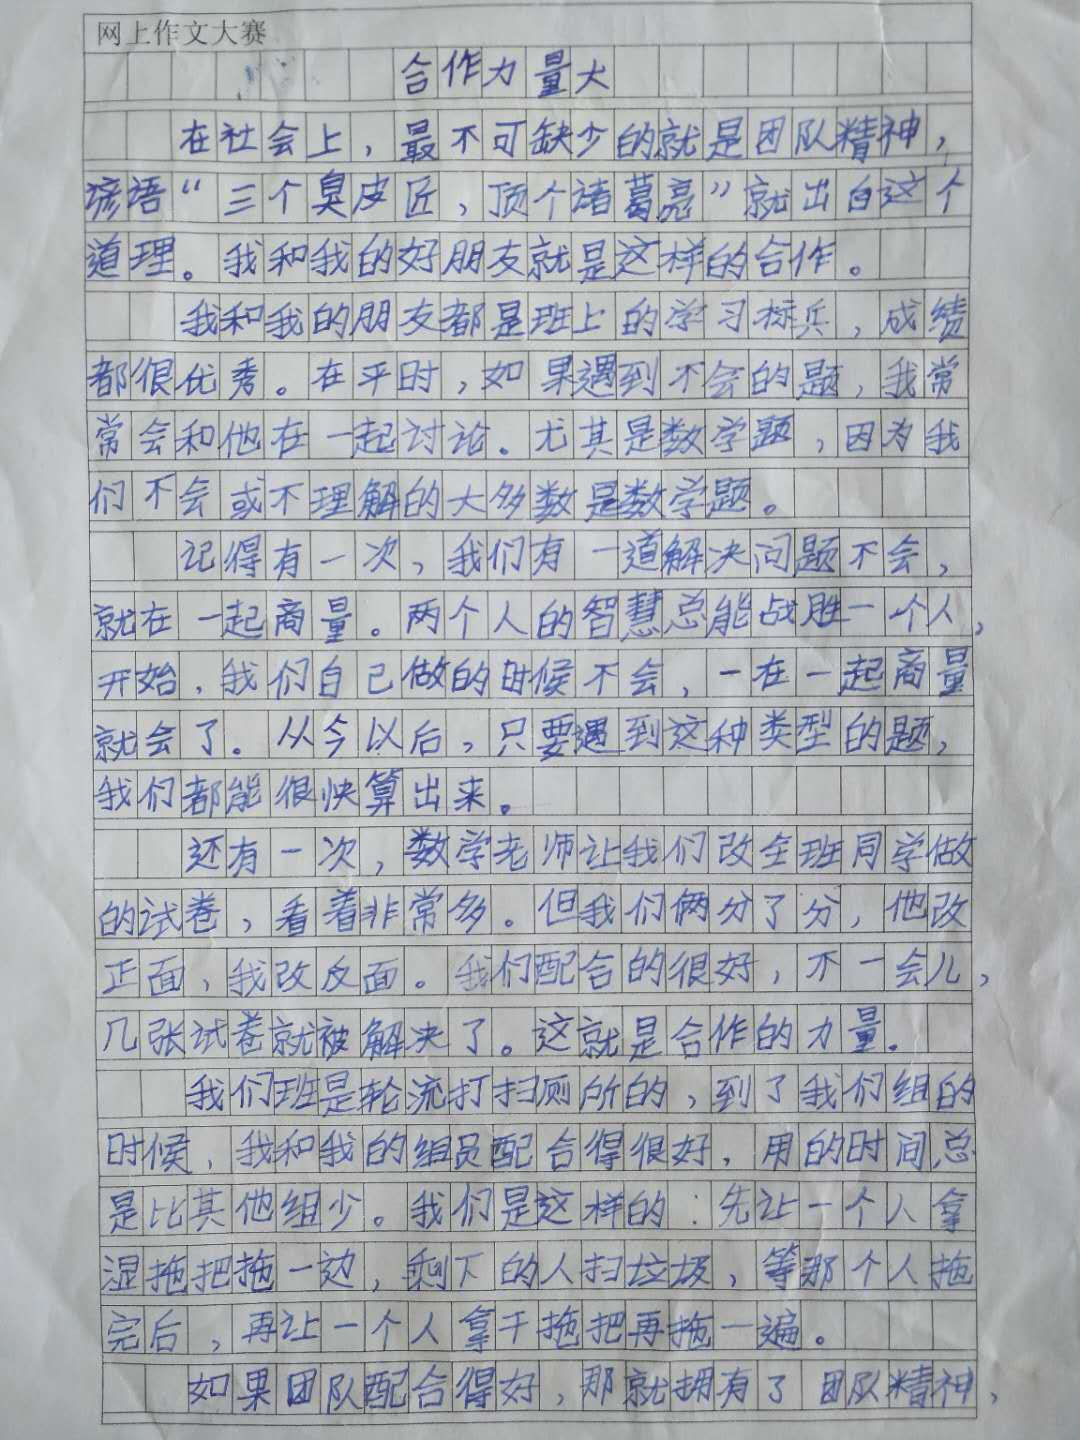 网上作文大赛
合作力量大
在社会上，最不可缺少的就是团队精神，
谚语“三个臭皮匠，顶个诸葛亮”就出自这个
道理。我和我的好朋友就是这样的合作。
我和我的朋友都是班上的学习标兵，成绩
都很优秀。在平时，如果遇到不会的题，我常
常会和他在一起讨论。尤其是数学题，因为我
们不会或不理解的大多数是数学题。
记得有一次，我们有一道解决问题不会，
就在一起商量。两个人的智慧总能战胜一个人，
开始，我们自己做的时候不会，一在一起商量
就会了。从今以后，只要遇到这种类型的题，
我们都能很快算出来。
还有一次，数学老师让我们改全班同学做
的试卷，看着非常多。但我们俩分了分，他改
正面，我改反面。我们配合的很好，不一会儿，
几张试卷就被解决了。这就是合作的力量.
我们班是轮流打扫厕所的，到了我们组的
时候，我和我的组员配合得很好，用的时间总
是比其他组少。我们是这样的：先让一个人拿
湿拖把拖一边，剩下的人扫垃圾，等那个人拖
完后，再让一个人拿干拖把再拖一遍。
如果团队配合得好，那就拥有了团队精神，